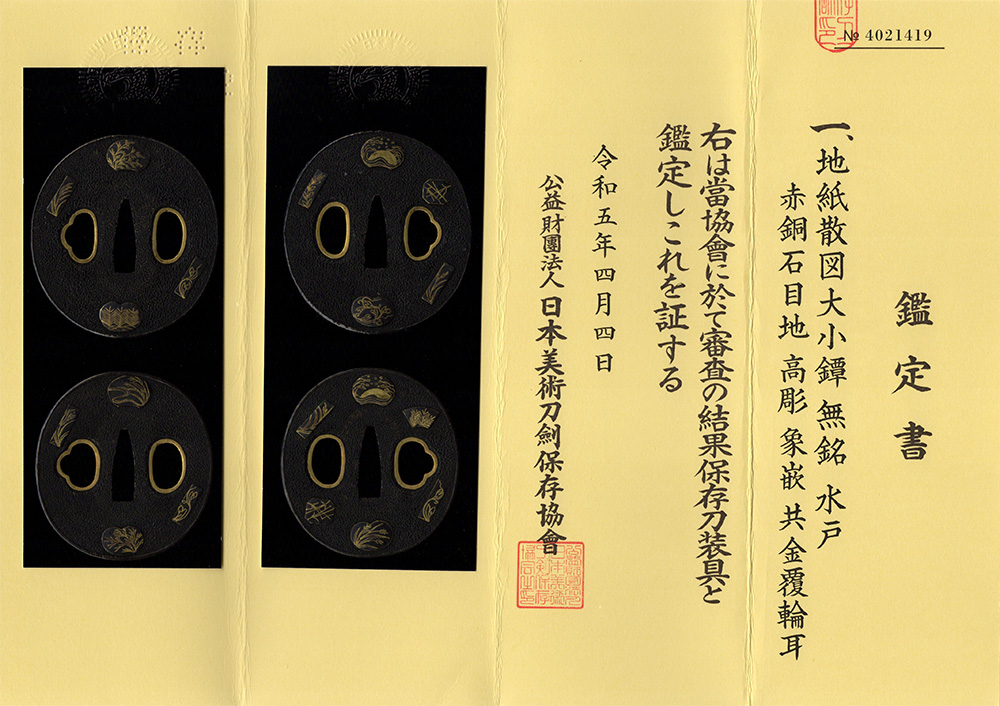 № 4021419
鑑定書
一、地紙散図大小鐔 無銘 水戸
赤銅石目地 高彫 象嵌 共金覆輪耳
右は當協會に於て審査の結果保存刀装具と
鑑定しこれを証する
令和五年四月四日
公益財團法人 日本美術刀劍保存協會
保存